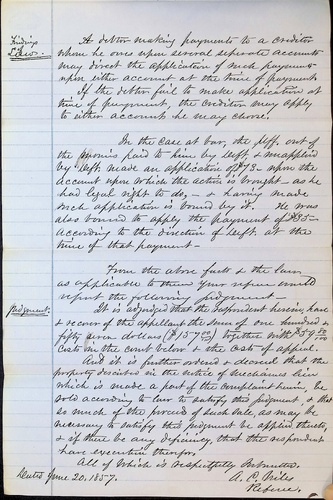 Findings
Law.
A debtor making payments to a creditor
where he owes upon several seperate accounts
may direct the application of such payment
upon either account at the time of payment.
If the debtor fail to make application at
time of payment, the creditor may apply
to either account he may choose.
In the case at bar, the plff. out of
the monies paid to him by deft. & unapplied
by deft. made an application of $73- upon the
account upon which the action is brought - as he
had legal right to do, - & having made
such application is bound by it. He was
also bound to apply the payment of $35-
according to the direction of deft. at the
time of that payment -
From the above facts & the law
as applicable to them your referee would
report the following judgment -
Judgment.
It is adjudged that the respondent herein, have
& recover of the appellant the sum of one hundred &
fifty seven dollars ($157 00/100) together with $59
costs in the court below & the costs of appeal.
And it is further ordered & decreed that the
property described in the notice of mechanics lien
which is made a part of the complaint herein, be
sold according to law to satisfy this judgment, & that
so much of the proceeds of such sale, as may be
necessary to satisfy this judgment be applied thereto,
& if there be any deficiency, that the respondent
have execution therefor.
All of which is respectfully submitted.
Dated June 20, 1857.
A. C. Niles
Referee.